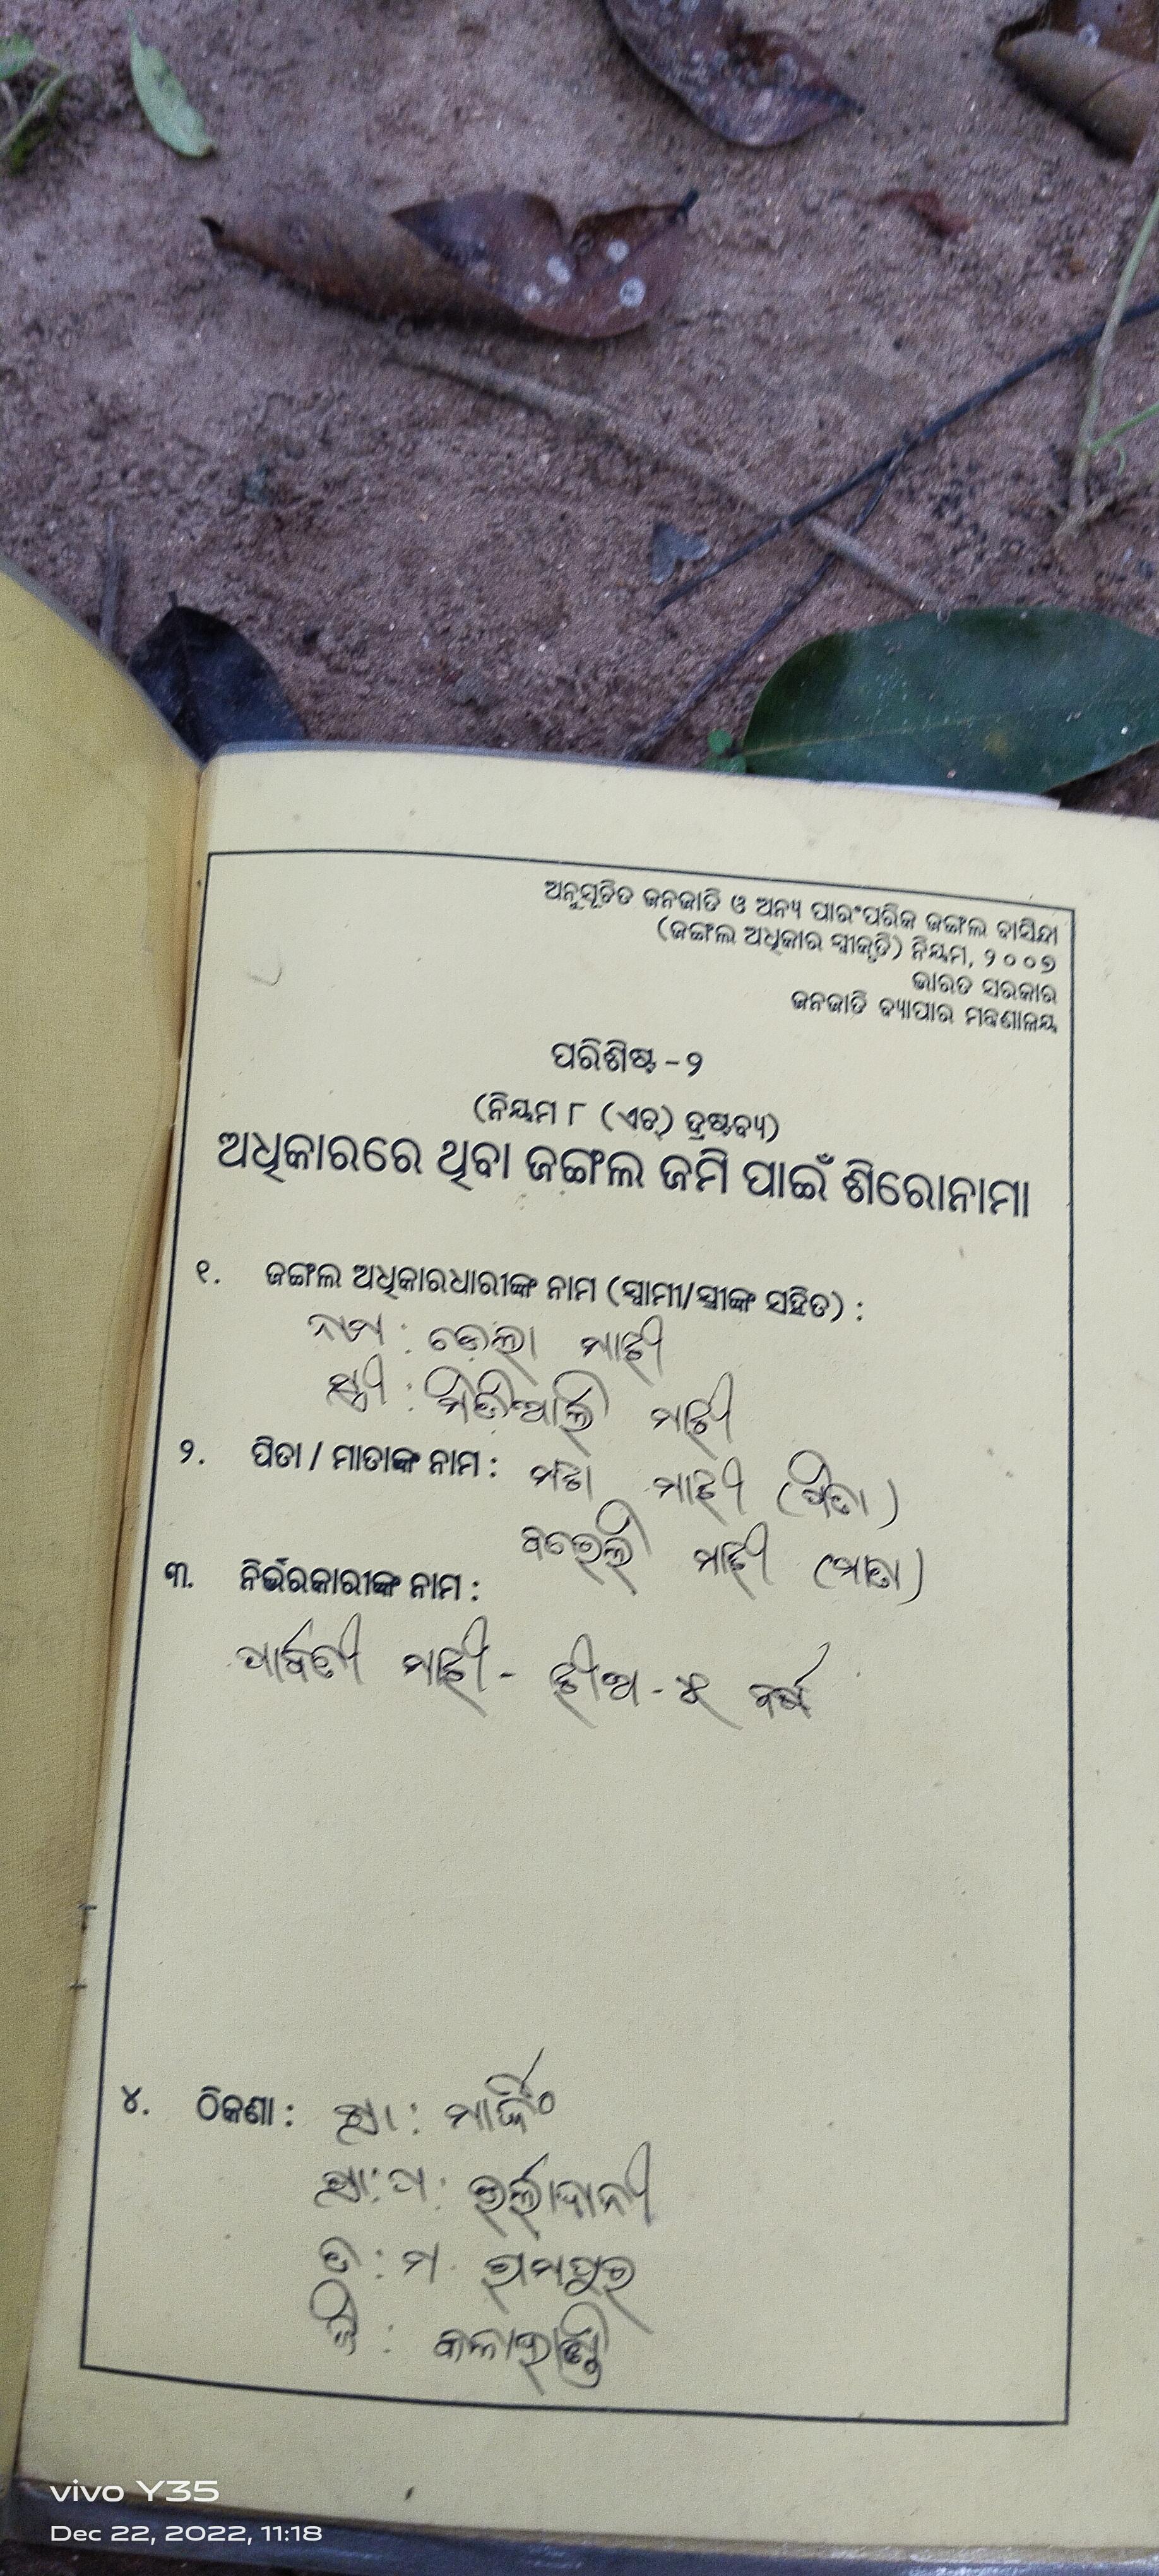 ଅନୁସୂଚିତ ଜନଜାତି ଓ ଅନ୍ୟ ପାରଂପରିକ ଜଙ୍ଗଲ ବାସିନ୍ଦା
(ଜଙ୍ଗଲ ଅଧିକାର ସ୍ୱୀକୃତି) ନିୟମ, ୨୦୦୭
ଭାରତ ସରକାର
ଜନଜାତି ବ୍ୟାପାର ମନ୍ତ୍ରଣାଳୟ
ପରିଶିଷ୍ଟ - ୨
(ନିୟମ ୮ (ଏଚ୍) ଦ୍ରଷ୍ଟବ୍ୟ)
ଅଧିକାରରେ ଥିବା ଜଙ୍ଗଲ ଜମି ପାଇଁ ଶିରୋନାମା
୧. ଜଙ୍ଗଲ ଅଧିକାରଧାରୀଙ୍କ ନାମ (ସ୍ୱାମୀ/ସ୍ତ୍ରୀଙ୍କ ସହିତ) :
ନାମ : ମାଝୀ
ସ୍ତ୍ରୀ : ମାଝୀ
୨. ପିତା / ମାତାଙ୍କ ନାମ : ମାଝୀ (ପିତା)
ମାଝୀ (ମାତା)
୩. ନିର୍ଭରକାରୀଙ୍କ ନାମ :
ପାର୍ବତୀ ମାଝୀ - ଝୀଅ - ବର୍ଷ
୪. ଠିକଣା : ଗ୍ରା :
ଗ୍ରା: ପ: ଉର୍ଲାଦାନୀ
ତ : ମ. ରାମପୁର
ଜି : କଳାହାଣ୍ଡି
vivo Y35
Dec 22, 2022, 11:18